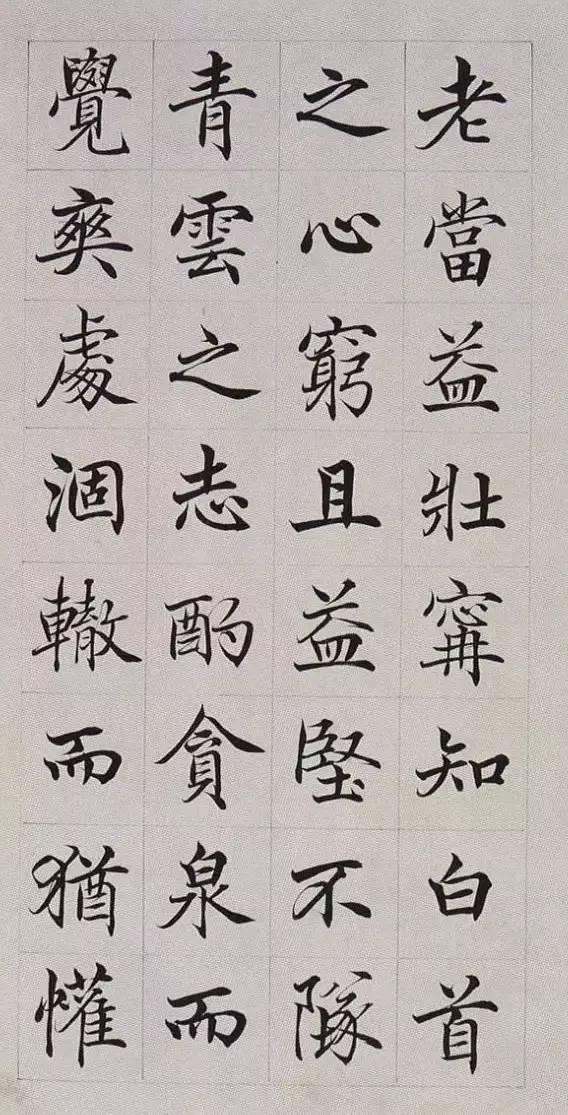 老當益壯寗知白首
之心窮且益堅不隊
青雲之志酌貪泉而
覺爽處涸轍而猶懽